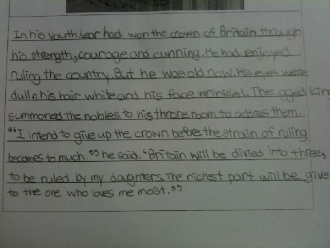 In his youth lear had won the crown of Britain through
his strength, courage and cunning. He had enjoyed
ruling the country. But he was old now. His eyes were
dull, his hair white and his face wrinkled. The aged kin
summoned the nobles to his throne room to adress them.
"I intend to give up the crown before the strain of ruling
becomes to much." he said. "Britain will be divied into three,
to be ruled by my daughters. The richest part will be give
to the one who loves me most."